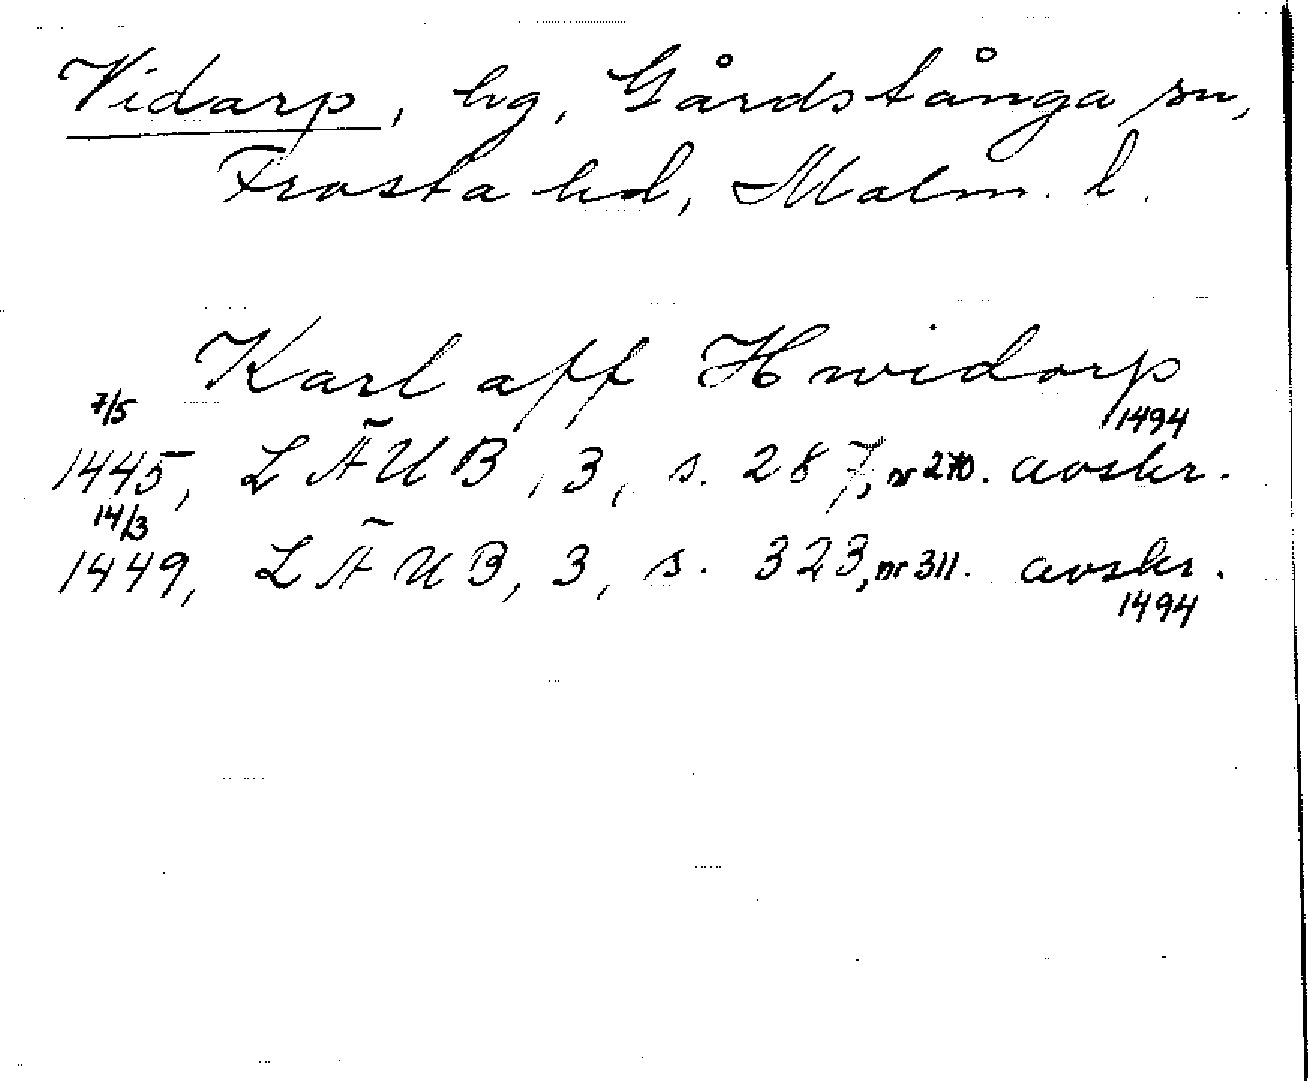 Vidarp, hg, Gårdstånga sn,
Frosta hd, Malm. l.
Karl aff Hwidorp
7/5
1494
1445, LÄUB, 3, s. 287, nr 270. avskr.
14/3
1449, LÄUB, 3, s. 323, nr 311. avskr.
1494